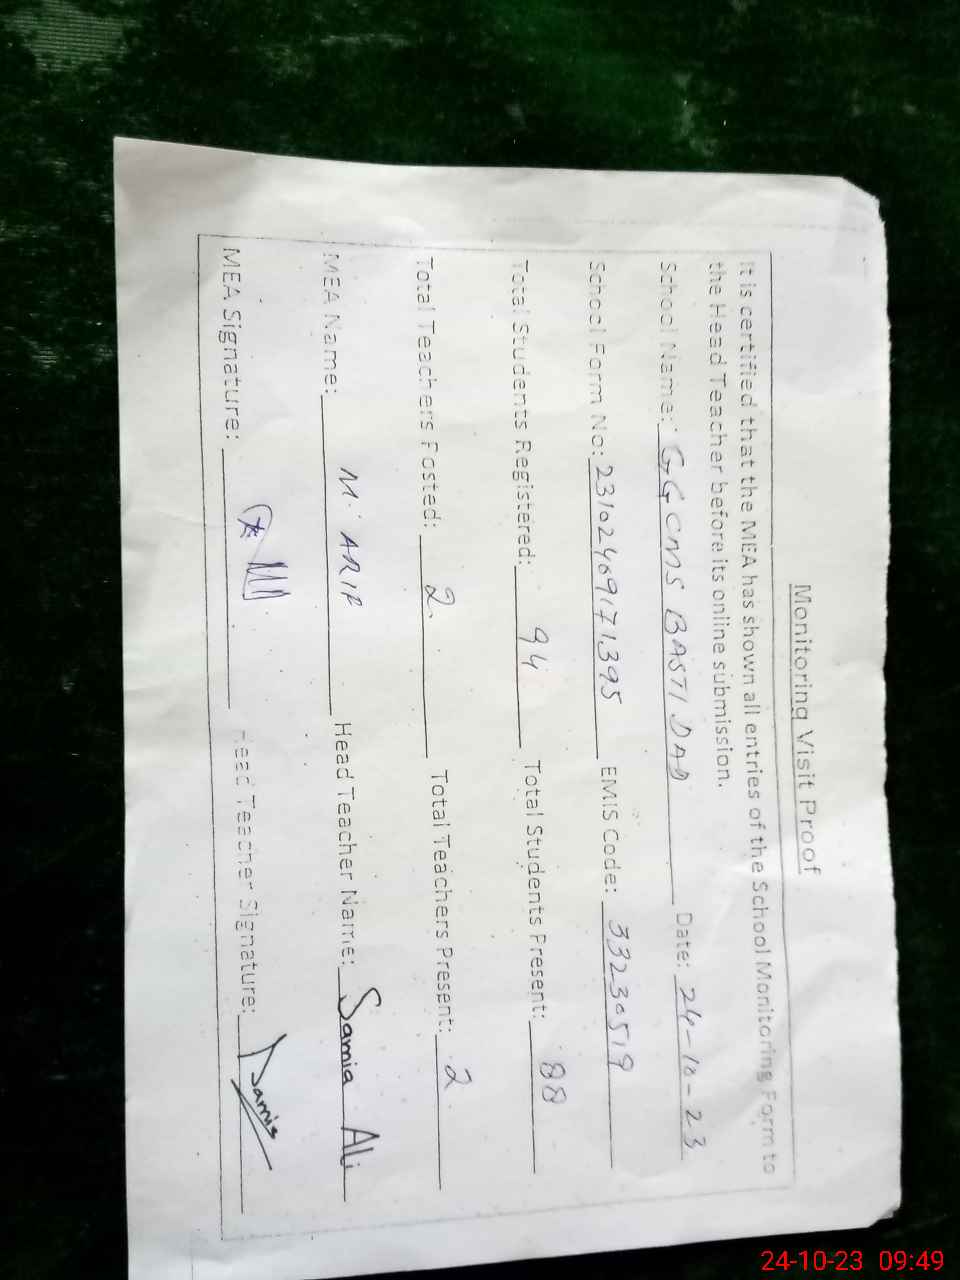 Monitoring Visit Proof
It is certified that the MEA has shown all entries of the School Monitoring Form to
the Head Teacher before its online submission.
School Name: GGCMS BASTI DAD Date: 24-10-23
School Form No: 23102409171395 EMIS Code: 33230519
Total Students Registered: 94 Total Students Present: 88
Total Teachers Posted: 2 Total Teachers Present: 2
MEA Name: M. ARIF Head Teacher Name: Samia Ali
MEA Signature: Head Teacher Signature: Samia
24-10-23 09:49